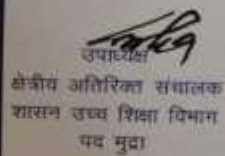 उपाध्यक्ष
क्षेत्रीय अतिरिक्त संचालक
शासन उच्च शिक्षा विभाग
पद मुद्रा